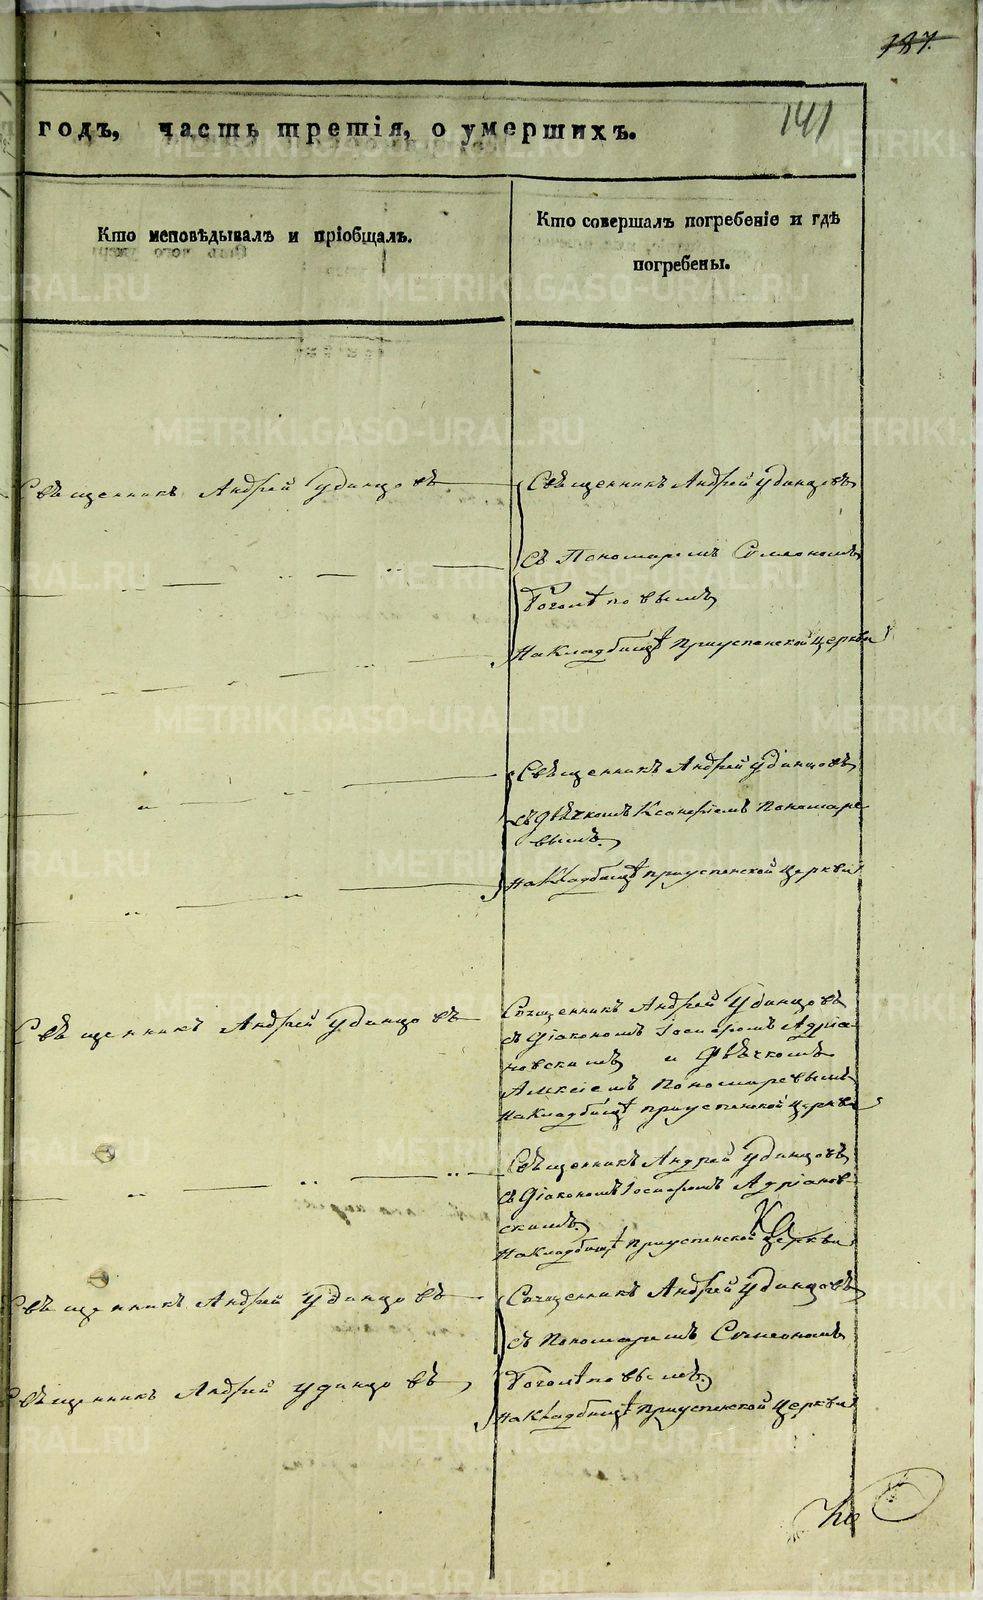 187.
141
годъ, часть третія, о умершихъ.
Кто исповѣдывалъ и пріобщалъ.
Кто совершалъ погребеніе и гдѣ
погребены.
Священникъ Андрей Удинцовъ
Священникъ Андрей Удинцовъ
съ Пономаремъ Симеономъ
Боголѣповымъ
На Кладбищѣ Приуспенской Церкви
Священникъ Андрей Удинцовъ
съ Дьячкомъ Ксанфіемъ Пономаре
вымъ.
на Кладбищѣ приуспенской Церкви
Священникъ Андрей Удинцовъ
Священникъ Андрей Удинцовъ
съ Діакономъ Іосифомъ Адріа
новскимъ и Дьячкомъ
Алексіемъ Пономаревымъ
на Кладбищѣ приуспенской Церкви
Священникъ Андрей Удинцовъ
съ Діакономъ Іосифомъ Адріанов
скимъ.
на Кладбищѣ Приуспенской Церкви
Священникъ Андрей Удинцовъ
Священникъ Андрей Удинцовъ
съ Пономаремъ Симеономъ
Священникъ Андрей Удинцовъ
Боголѣповымъ.
на Кладбищѣ Приуспенской Церкви
METRIKI.GASO-URAL.RU